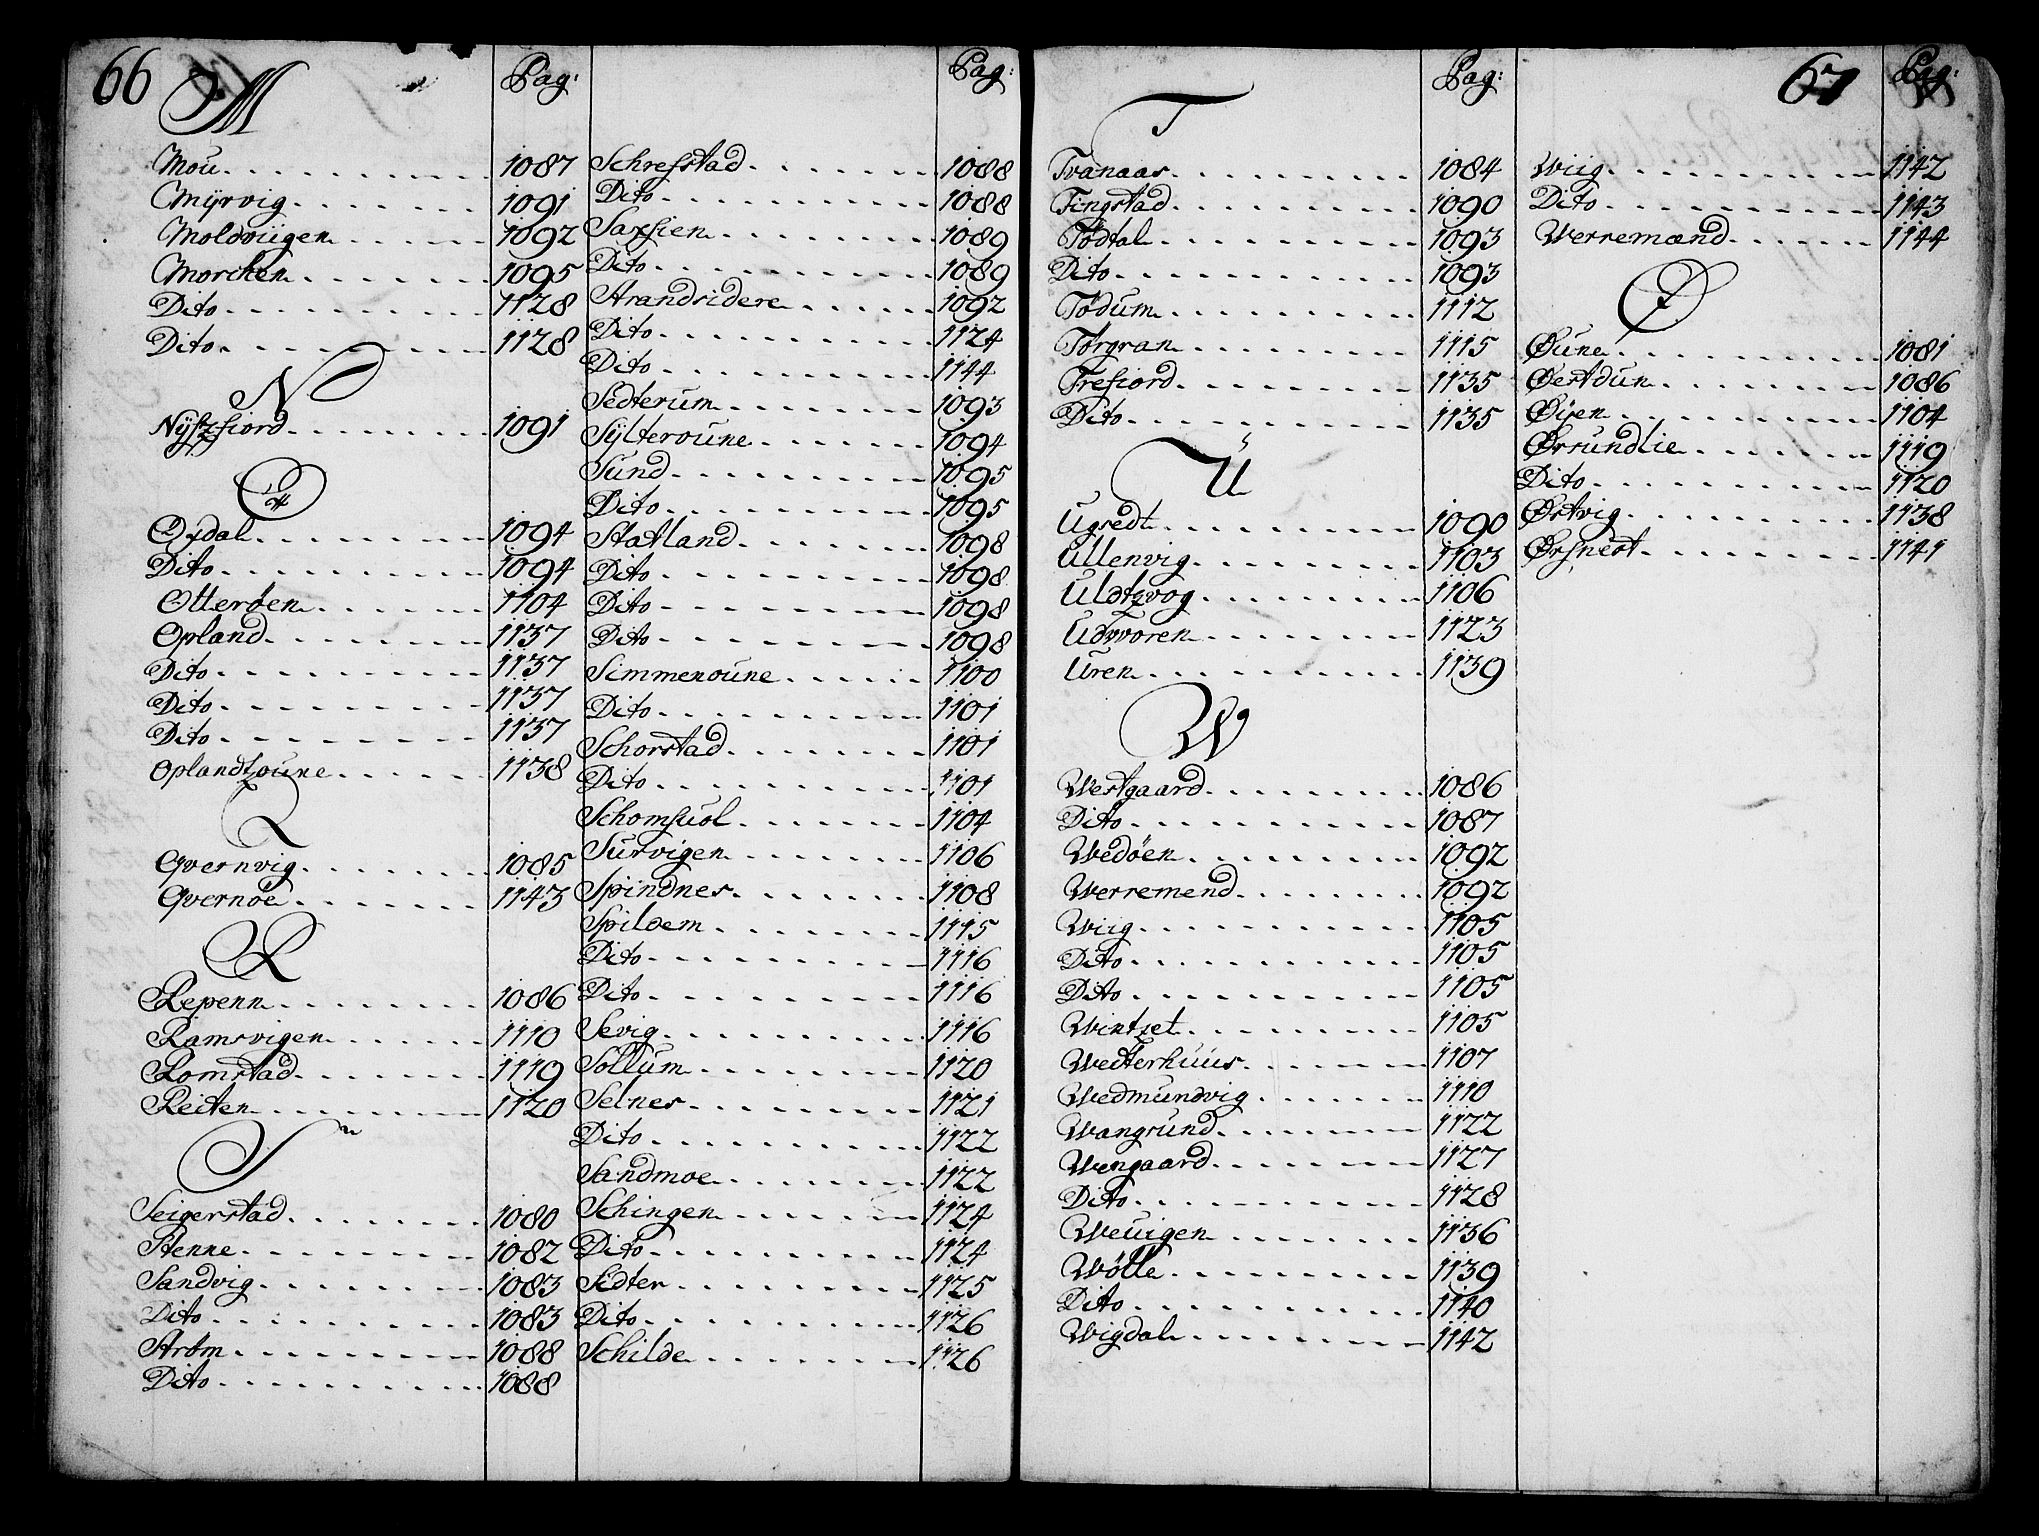 66
M Pag:
Mou 1087
Myrvig 1091
Moldvügen 1092
Morchen 1095
Dito 1128
Dito 1128
N
Nÿszfiord 1091
O
Oxdal 1094
Dito 1094
Otterøen 1104
Opland 1137
Dito 1137
Dito 1137
Dito 1137
Oplandzoune 1138
Q
Qvernvig 1085
Qvernøe 1143
R
Repenn 1086
Ramsvigen 1110
Romstad 1119
Reiten 1120
S
Seigerstad 1080
Stenne 1082
Sandvig 1083
Dito 1083
Strøm 1088
Dito 1088
Pag:
Schrefstad 1088
Dito 1088
Saxsien 1089
Dito 1089
Strandsidere 1092
Dito 1124
Dito 1144
Sedterum 1093
Sÿlteroune 1094
Sund 1095
Dito 1095
Statland 1098
Dito 1098
Dito 1098
Dito 1098
Simmenoune 1100
Dito 1101
Schorstad 1101
Dito 1101
Schomsuol 1104
Survigen 1106
Spindnes 1108
Spildem 1115
Dito 1116
Dito 1116
Sevig 1116
Sollum 1120
Selnes 1121
Dito 1122
Sandmoe 1122
Schingen 1124
Dito 1124
Sedter 1125
Dito 1126
Schilde 1126
T Pag:
Tvanaas 1084
Tingstad 1090
Tødtal 1093
Dito 1093
Tødum 1112
Torgran 1115
Trefiord 1135
Dito 1135
U
Ugsedt 1090
Ullenvig 1103
Uldtzvog 1106
Udvvoren 1123
Uren 1139
W
Westgaard 1086
Dito 1087
Wedøen 1092
Werremend 1092
Wiig 1105
Dito 1105
Dito 1105
Wintzet 1105
Wedterhuus 1107
Wedmundvig 1110
Wangrund 1122
Wengaard 1127
Dito 1128
Weuigen 1136
Wølle 1139
Dito 1140
Wigdal 1142
67 Pag:
Wiig 1142
Dito 1143
Werremænd 1144
Ø
Øune 1081
Øertdun 1086
Øÿen 1104
Ørsundlie 1119
Dito 1120
Østvig 1138
Ørsnest 1141